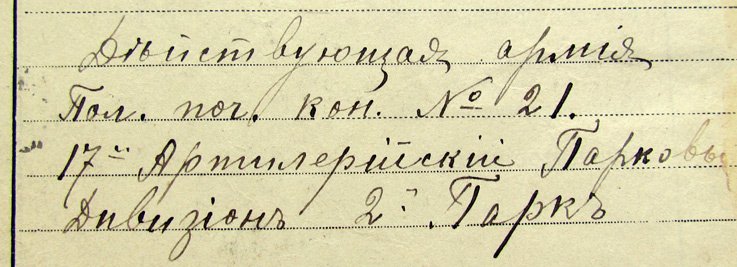 Дѣйствующая армія
Пол. поч. кон. № 21.
17й Артилерійскій Парковы
Дивизіонъ 2й Паркъ